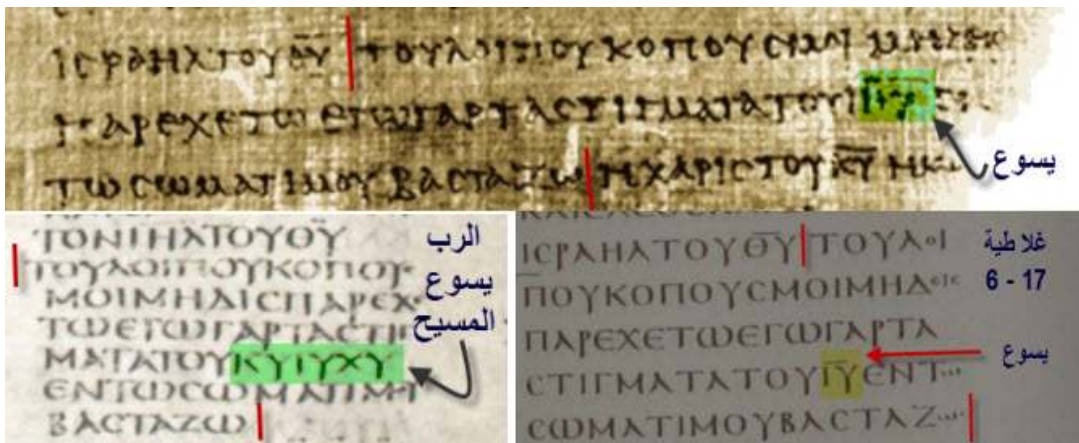 ΙΣΡΑΗΛΤΟΥΘΥ ΤΟΥΛΟΙΠΟΥΚΟΠΟΥΣΜΟΙ
ΠΑΡΕΧΕΤΩΕΓΩΓΑΡΤΑΣΤΙΓΜΑΤΑΤΟΥ
يسوع
ΤΩΣΩΜΑΤΙΜΟΥΒΑΣΤΑΖΩ ΗΧΑΡΙΣΤΟΥΚΥ
ΤΟΝΙΗΛΤΟΥΘΥ
ΤΟΥΛΟΙΠΟΥΚΟΠΟΥΣ
ΜΟΙΜΗΔΙΣΠΑΡΕΧΕ
ΤΩΕΓΩΓΑΡΤΑΣΤΙΓ
ΜΑΤΑΤΟΥΚΥΙΥΧΥ
ΕΝΤΩΣΩΜΑΤΙΜΟΥ
ΒΑΣΤΑΖΩ
الرب
يسوع
المسيح
ΙΣΡΑΗΛΤΟΥΘΥ ΤΟΥΛΟΙ
ΠΟΥΚΟΠΟΥΣΜΟΙΜΗΔΕΙΣ
ΠΑΡΕΧΕΤΩΕΓΩΓΑΡΤΑ
ΣΤΙΓΜΑΤΑΤΟΥΙΥΕΝΤ
ΣΩΜΑΤΙΜΟΥΒΑΣΤΑΖ
غلاطية
6 - 17
يسوع